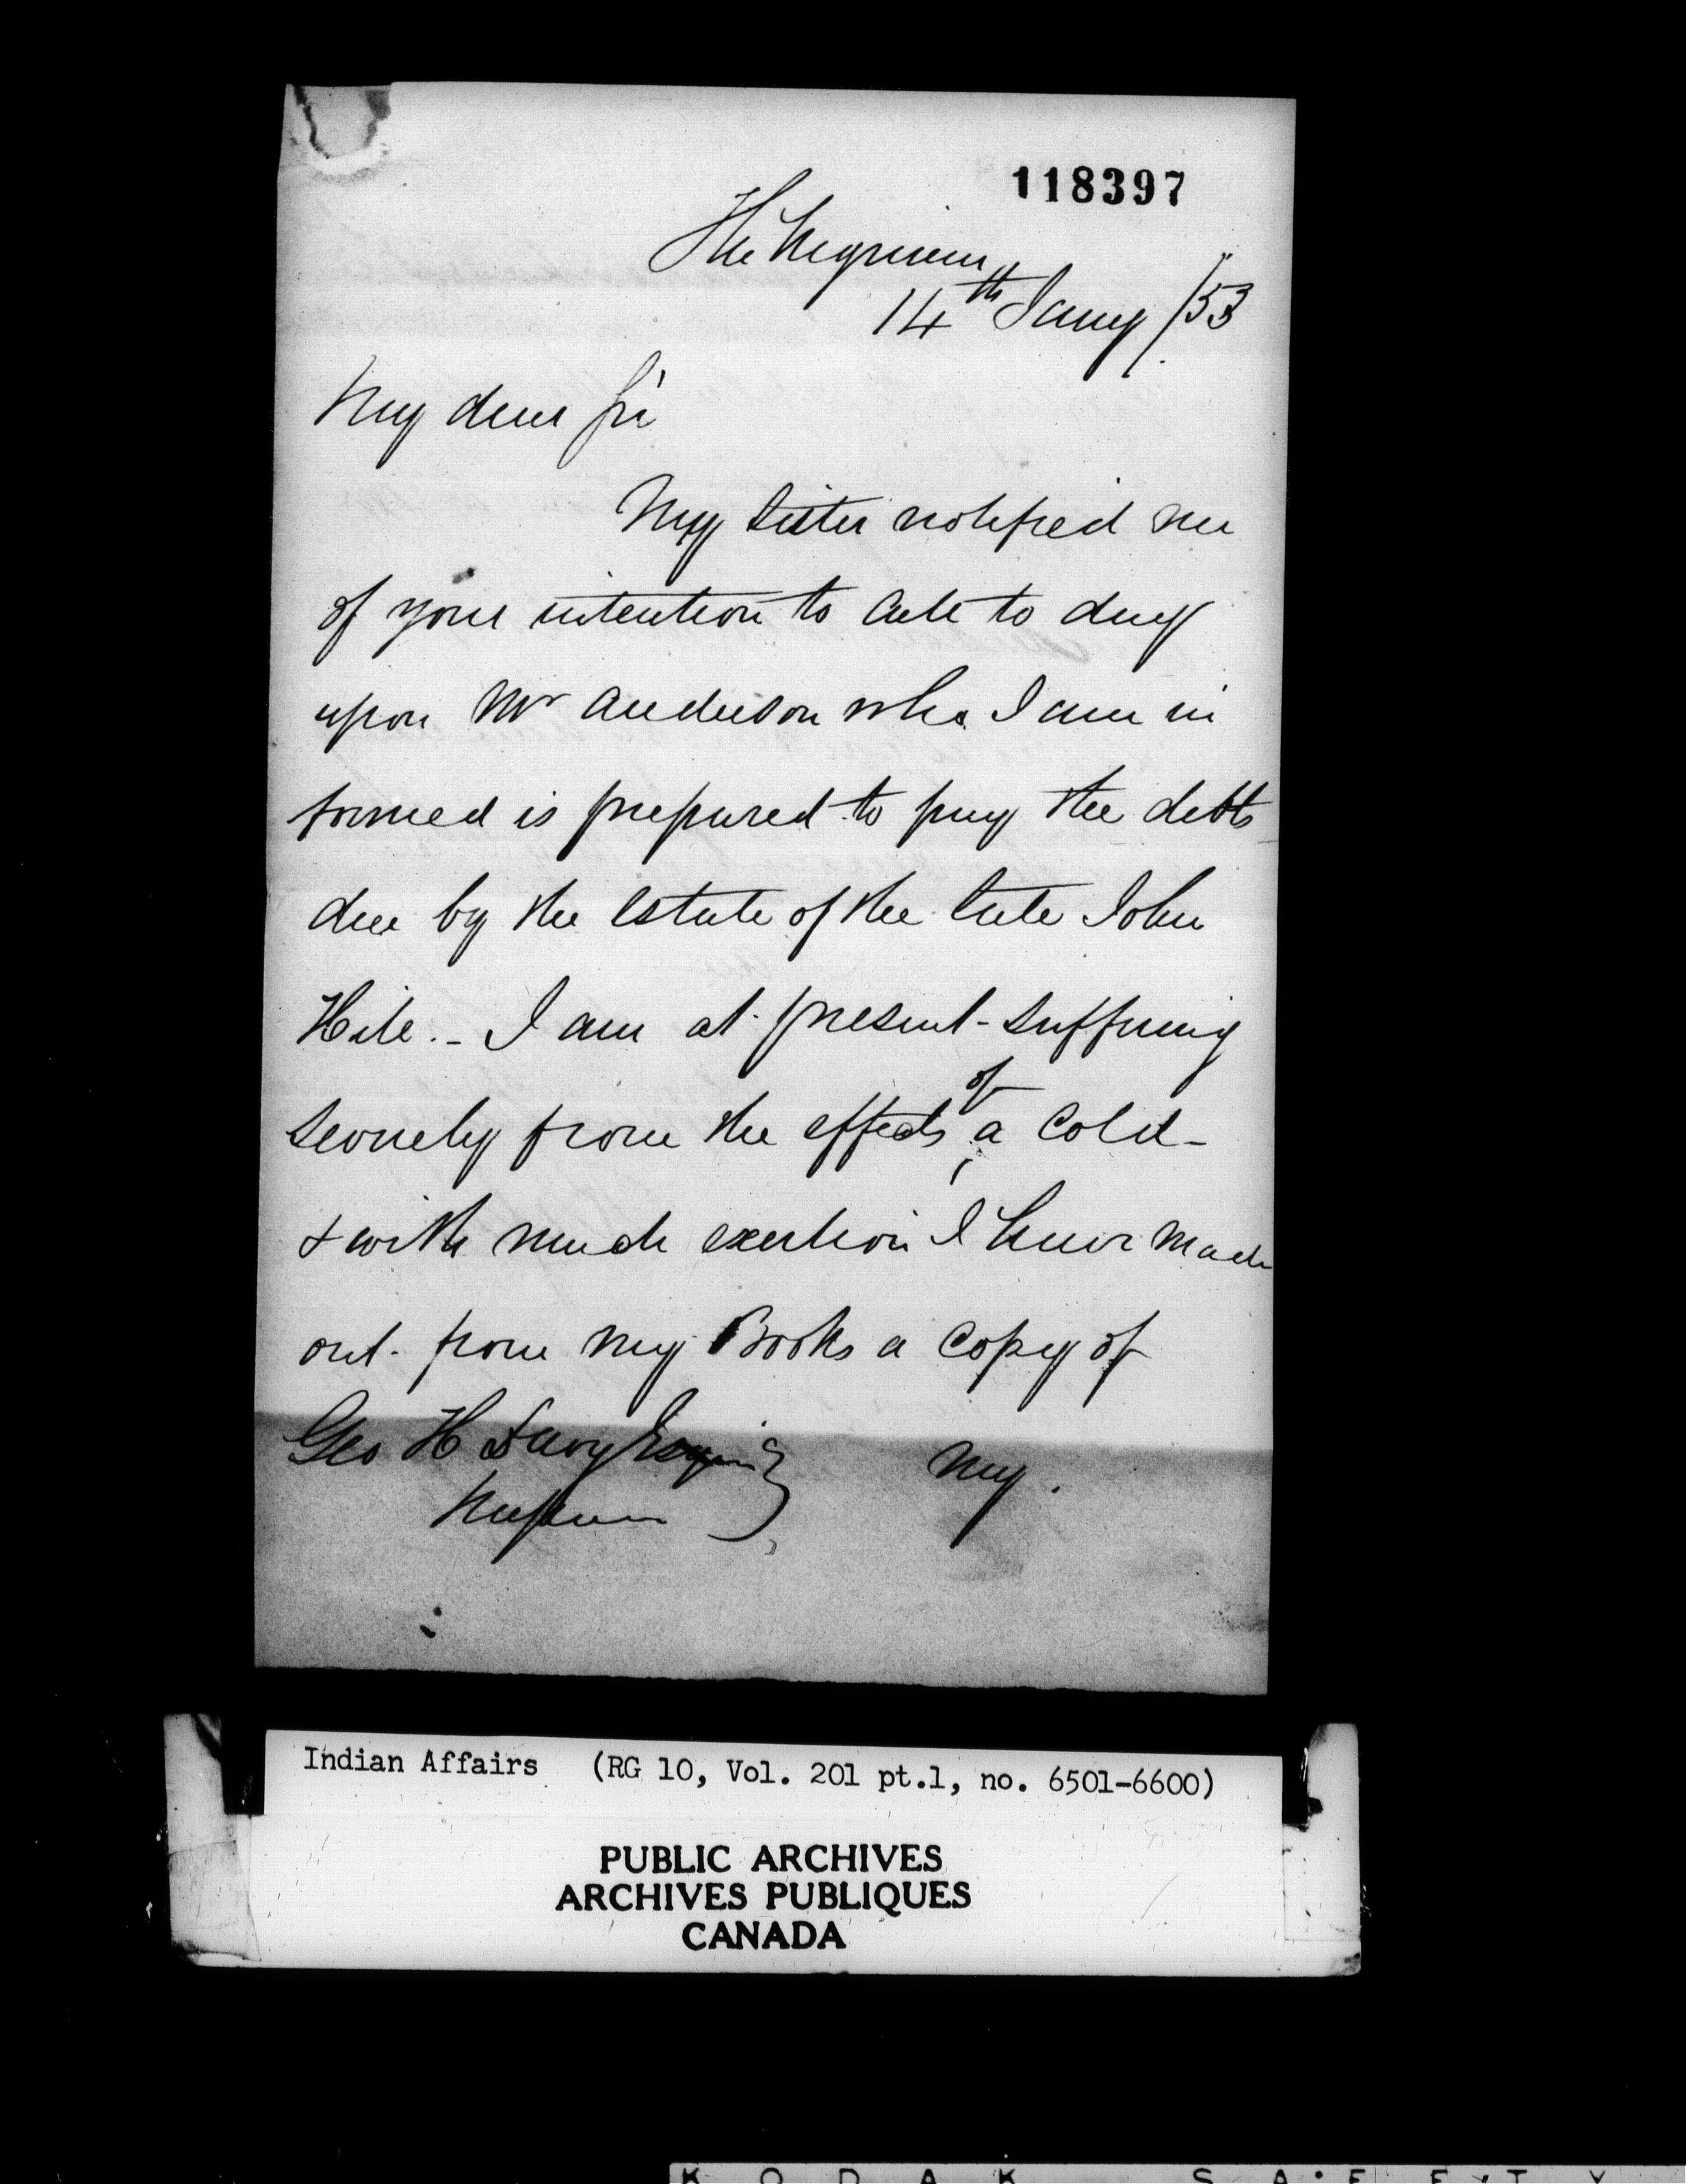 118397
The Megrinim
14th Jany /53
My dear Sir
My Sister notified me
of your intention to Call to day
upon Mr Anderson who I am in
formed is prepared to pay the debts
due by the Estate of the late John
Hill. - I am at present suffering
severely from the effects of a Cold -
& with much exertion I have made
out from my Books a Copy of
Geo H Davy Esquire
Napanee
my.
Indian Affairs (RG 10, Vol. 201 pt.1, no. 6501-6600)
PUBLIC ARCHIVES
ARCHIVES PUBLIQUES
CANADA
KODAK SAFETY